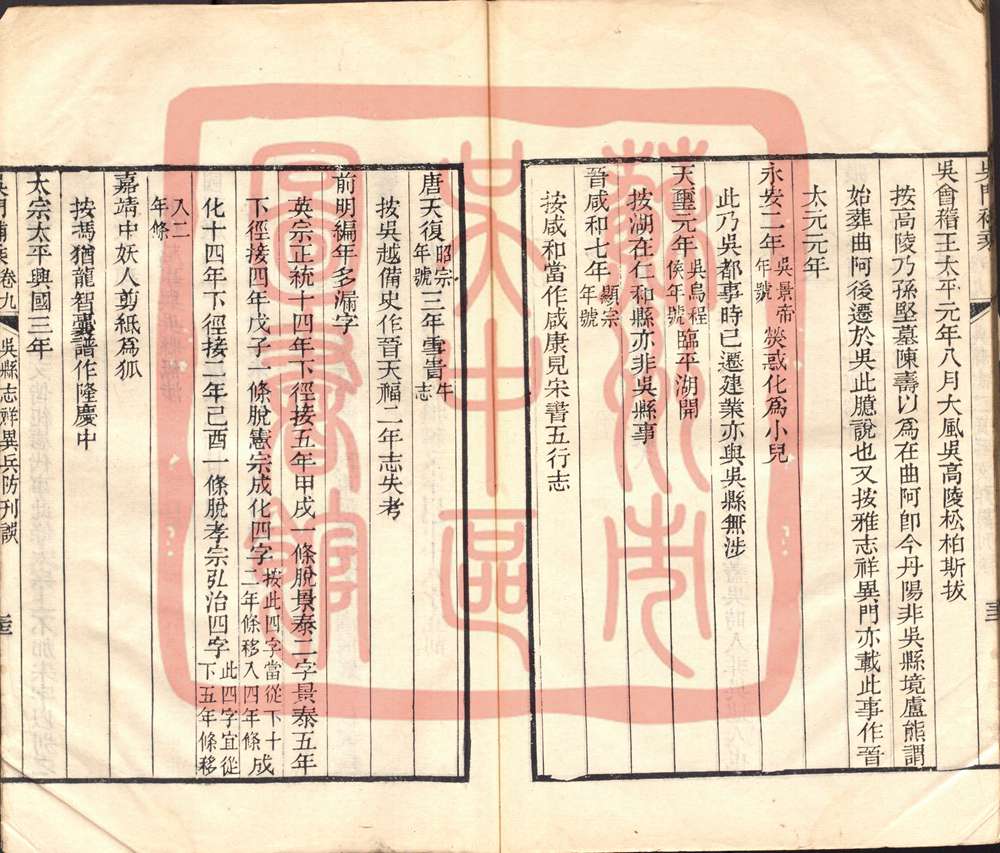 吳會稽王太平元年八月大風吳高陵松柏斯拔
按高陵乃孫堅墓陳壽以爲在曲阿卽今丹陽非吳縣境盧熊謂
始葬曲阿後遷於吳此臆說也又按雅志祥異門亦載此事作晉
太元元年
永安二年吳景帝年號熒惑化爲小兒
此乃吳都事時已遷建業亦與吳縣無涉
天璽元年吳烏程侯年號臨平湖開
按湖在仁和縣亦非吳縣事
晉咸和七年顯宗年號
按咸和當作咸康見宋書五行志
唐天復昭宗年號三年雪晝牛志
按吳越備史作晉天福二年志失考
前明編年多漏字
英宗正統十四年下徑接五年甲戌一條脫景泰二字景泰五年
下徑接四年戊子一條脫憲宗成化四字按此四字當從下十二年條移入四年條成
化十四年下徑接二年己酉一條脫孝宗弘治四字此四字宜從下五年條移
入二年條
嘉靖中妖人剪紙爲狐
按馮猶龍智囊譜作隆慶中
太宗太平興國三年
吳門補乘卷九 吳縣志祥異兵防刊誤